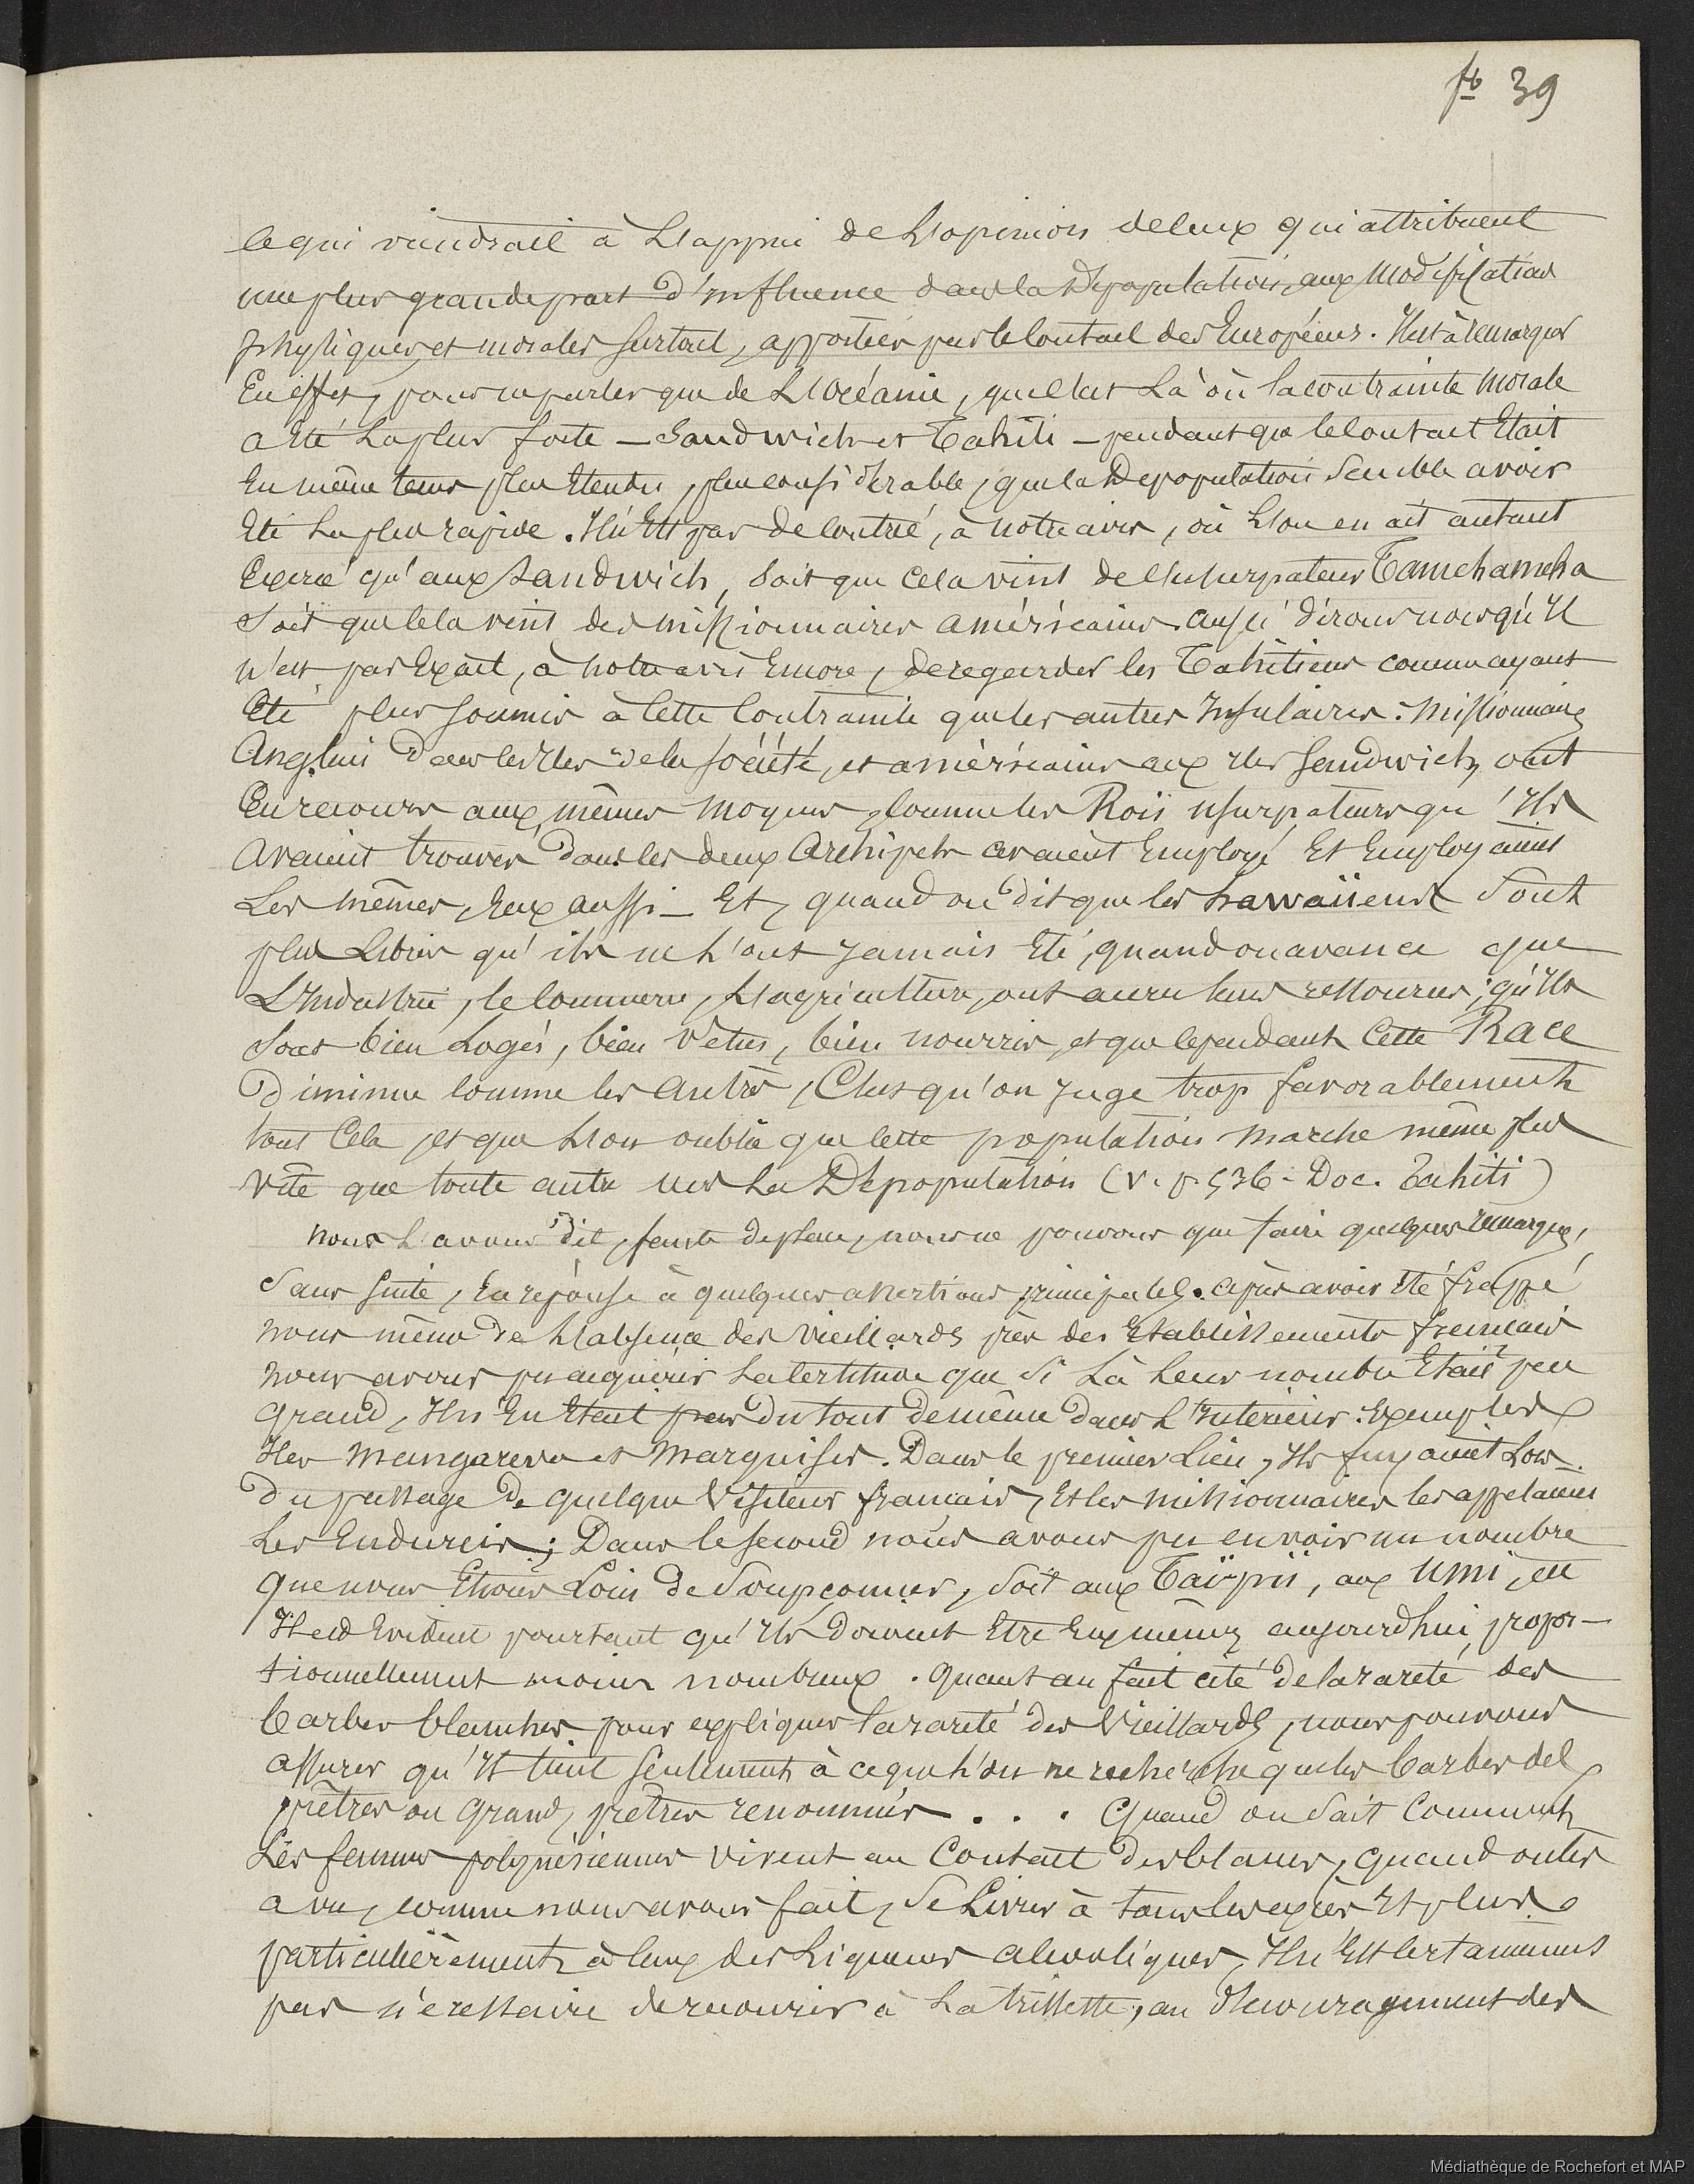 fo 39
ce qui viendrait à L'appui de L'opinion de ceux qui attribuent
une plus grande part d'influence dans la Dépopulation, aux Modifications
physiques, et morales surtout, apportées par le contact des Européens. Il est à remarquer
En effet, pour ne parler que de L'Océanie, que c'est Là où la contrainte Morale
a Eté La plus forte — Sandwich et Tahiti — pendant que le contact Etait
En même tems plus Etendu, plus considérable, que la Dépopulation Semble avoir
Eté La plus rapide. Il n'Est pas de contrée, à notre avis, où L'on en ait autant
Exercé qu'aux Sandwich, Soit que Cela vint de l'usurpateur Tamehameha
Soit que Cela vint des missionnaires américains. Aussi dirons nous qu'Il
n'est pas Exact, à Notre avis Encore, de regarder les Tahitiens comme ayant
Eté plus soumis à Cette Contrainte que les autres Insulaires. Missionnaires
Anglais dans les Iles de la Société, et américains aux Iles Sandwich, ont
Eu recours aux mêmes Moyens, comme les Rois usurpateurs qu'Ils
Avaient trouvés dans les deux Archipels avaient Employé Et Employaient
Les mêmes, Eux aussi — Et, quand on dit que les hawaiiens Sont
plus Libres qu'ils ne l'ont Jamais Eté, quand on avance que
L'Industrie, le Commerce, L'agriculture, ont accru leurs ressources; qu'Ils
Sont bien Logés, bien Vêtus, bien nourris, et que Cependant Cette Race
diminue Comme les Autres, C'est qu'on Juge trop favorablement
tout Cela, et que L'on oublie que Cette population marche même plus
Vite que toute autre vers La Dépopulation (V. p. 536 - Doc. Tahiti)
Nous L'avons dit, faute de place, nous ne pouvons que faire quelques remarques,
Sans Suite, En réponse à quelques assertions principales. Après avoir Eté frappé
nous même de L'absence des Vieillards près des Etablissements français
Nous avons pu acquérir La Certitude que Si Là Leur nombre Etait peu
Grand, Il n'En Etait pas du tout de même dans L'Intérieur. Exemples
Iles Mangareva et Marquises. Dans le premier Lieu, Ils fuyaient Lors
du passage de quelque Visiteur français, Et les missionnaires les appelaient
Les Endurcis; Dans le second nous avons pu en voir un nombre
Que nous Etions Loin de Soupçonner, Soit aux Taïpii, aux Umi, etc
Il est Evident pourtant qu'Ils doivent Etre Eux mêmes aujourd'hui, propor-
tionnellement moins nombreux. Quant au fait cité de la rareté des
barbes blanches pour expliquer la rareté des Vieillards, nous pouvons
assurer qu'Il tient Seulement à ce que l'on ne recherche que les barbes des
prêtres ou Grands prêtres renommés . . . Quand on Sait Comment
Les femmes polynésiennes vivent au Contact des blancs, Quand on les
a vu, comme nous avons fait, Se Livrer à tous les excès Et plus
particulièrement à Ceux des Liqueurs alcooliques, Il n'Est Certainement
pas nécessaire de recourir à La tristesse, au découragement des
Médiathèque de Rochefort et MAP